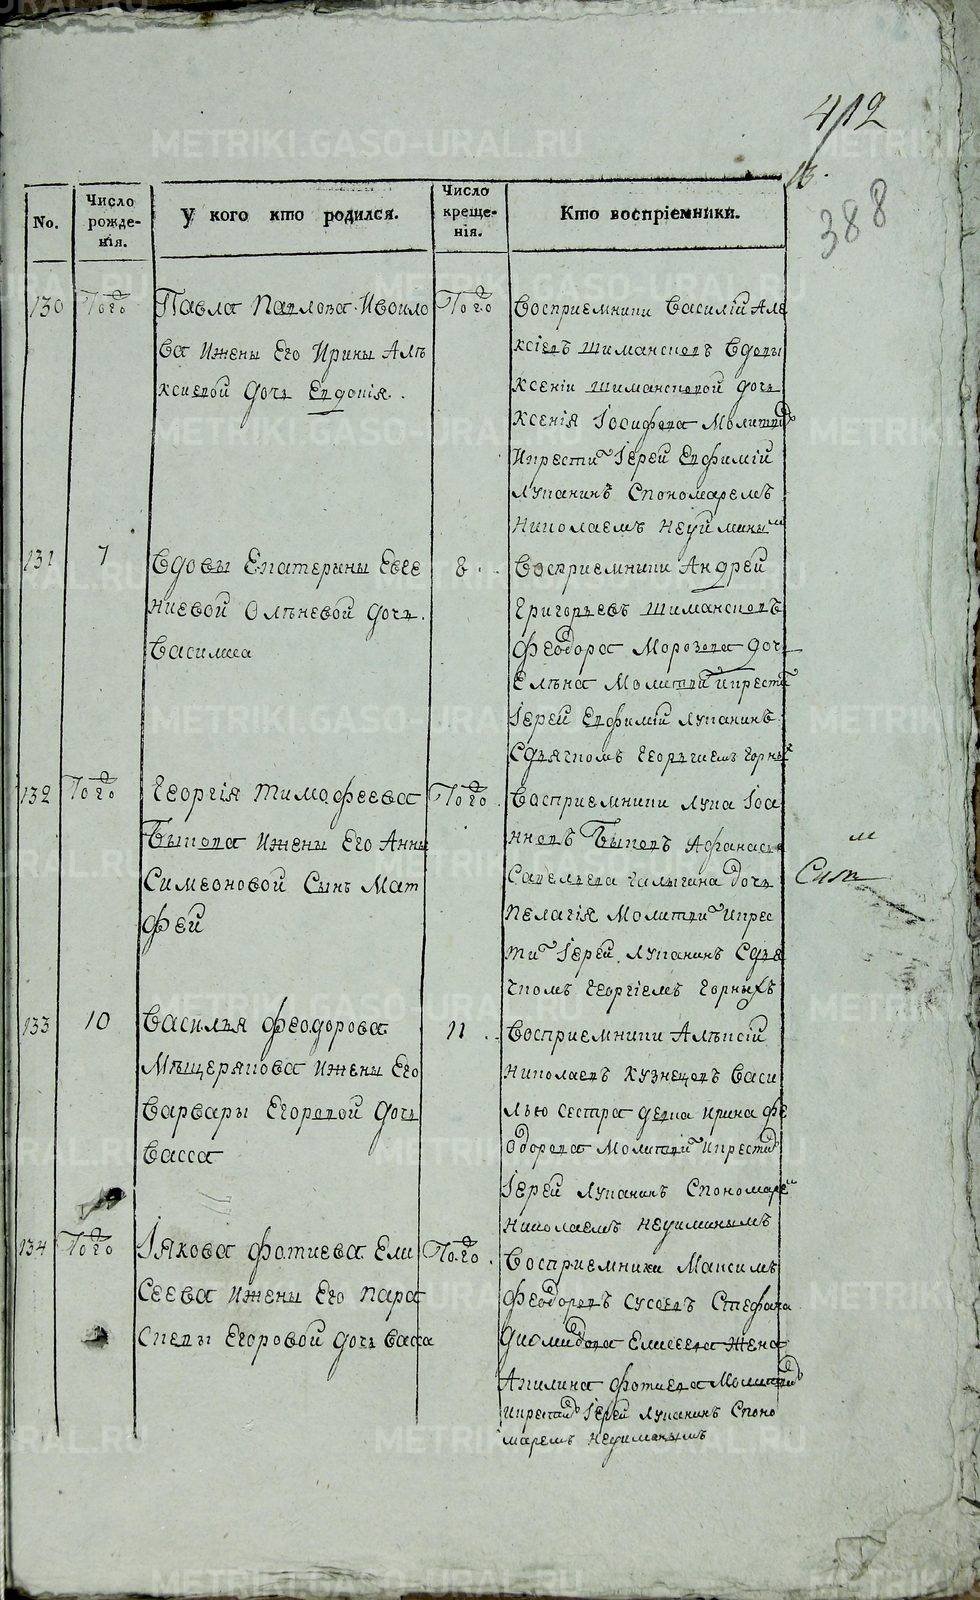 412
388
No.
Число рожде-нія.
У кого кто родился.
Число креще-нія.
Кто воспріемники.
130
Того
Павла Павлова Ивоило
ва Ижены Его Ирины Алѣ
ксиевой дочь Евдокія.
Того
Восприемники Василій Але
ксіевъ Шимансковъ Вдовы
Ксеніи Шимансковой дочь
Ксенія Іосифова Молитв
Икрести Іерей Евфимій
Лупанинъ Спономаремъ
Николаемъ Неуймины
131
7
Вдовы Екатерины Евге
ниевой Олѣневой дочь
Василиса
8
Восприемники Андрей
Григорьевъ Шимансковъ
Феодора Морозова дочь
Елѣна Молитви Икрести
Іерей Евфимій Лупанинъ
Сдьячкомъ Георгиемъ Горных
132
Того
Георгія Тимофеева
Быкова Ижены Его Анны
Симеоновой Сынъ Мат
фей
Того
Восприемники Лука Іоа
нновъ Быковъ Афанась
Савельева Галыгина дочь
Пелагія Молитви Икрес
ти Іерей Лупанинъ Сдья
чкомъ Георгіемъ Горныхъ
133
10
Василья Феодорова
Мѣщерякова Ижены Его
Варвары Егоровой дочь
Васса
11
Восприемники Алѣксій
Николаевъ Кузнецовъ Васи
лью сестра девка Ирина Фе
одорова Молитви Икрести
Іерей Лупанинъ Спономаре
Николаемъ Неуйминымъ
134
Того
Іякова Фотиева Ели
сеева Ижены Его Пара
скевы Егоровой дочь Васса
Того
Восприемники Максимъ
Феодоровъ Сусоевъ Стефана
Диомидова Елисеева Жена
Акилина Фотиева Молитв
Икрести Іерей Лупанинъ Споно
маремъ Неуйминымъ
METRIKI.GASO-URAL.RU